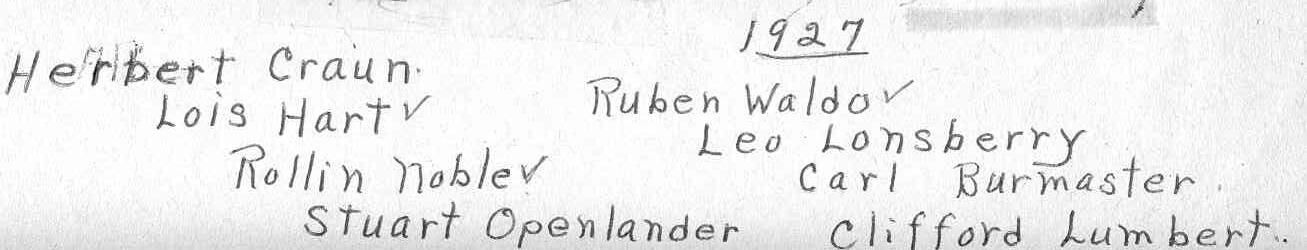 1927
Herbert Craun.
Lois Hart ✓
Rollin Noble ✓
Stuart Openlander
Ruben Waldo ✓
Leo Lonsberry
Carl Burmaster.
Clifford Lumbert..